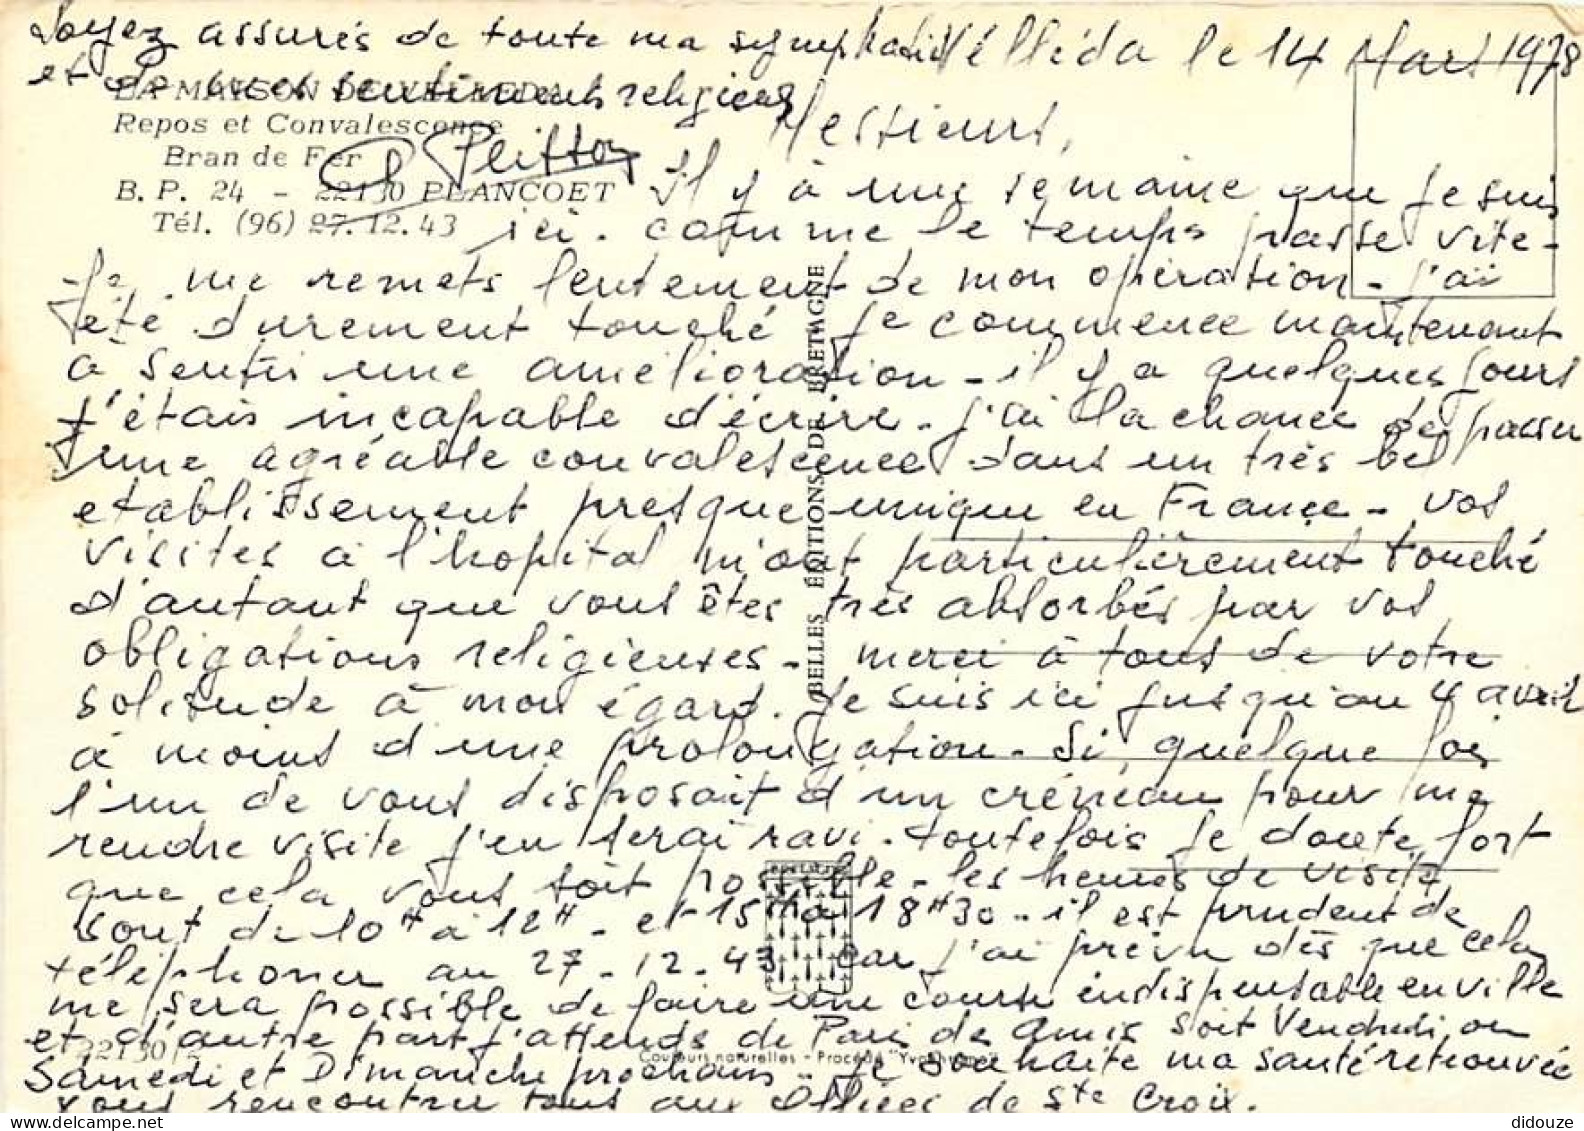 Soyez assurés de toute ma sympathie
et de mes sentiments religieux
LA MAISON DE VELLEDA
Repos et Convalescence
Bran de Fer
B. P. 24 - 22130 PLANCOET
Tél. (96) 27.12.43
Velléda le 14 Mars 1978
Messieurs,
Il y à une semaine que je suis
ici. comme le temps passe vite -
Je me remets lentement de mon opération - j'ai
été durement touché je commence maintenant
a sentir une amélioration - il y a quelques jours
j'étais incapable d'écrire - j'ai la chance de passer
une agréable convalescence dans un très bel
etablissement presque unique en France - vos
visites à l'hopital m'ont particulièrement touché
d'autant que vous êtes très absorbés par vos
obligations religieuses - merci à tous de votre
solitude à mon égard. Je suis ici jusqu'au 4 avril
à moins d'une prolongation - Si, quelque fois
l'un de vous disposait d'un créneau pour me
rendre visite j'en serai ravi - toutefois je doute fort
que cela vous soit possible - les heures de visite
sont de 10H à 12H - et 15H à 18H30 - il est prudent de
téléphoner au 27-12-43 car j'ai prévu dès que cela
me sera possible de faire une course indispensable en ville
et d'autre part j'attends de Paris des amis soit Vendredi, ou
Samedi et Dimanche prochains - Je souhaite ma santé retrouvée
vous rencontrer tous aux Offices de Ste Croix.
BELLES ÉDITIONS DE BRETAGNE
Couleurs naturelles - Procédé "Yvochrome"
didouze